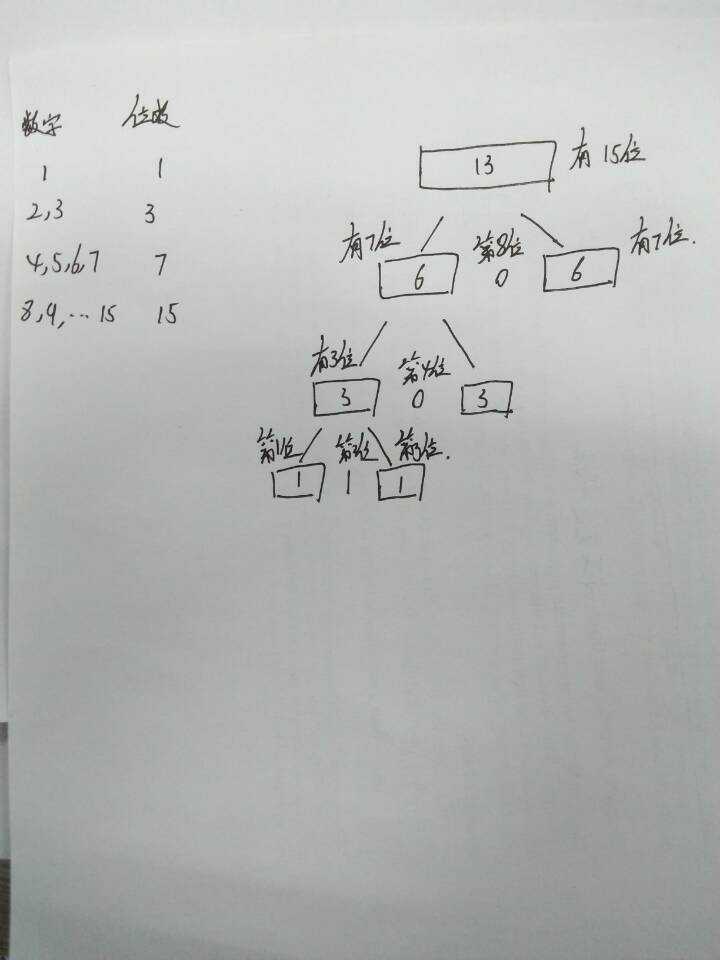 数字 位数
1 1
2,3 3
4,5,6,7 7
8,9,…15 15
13 有15位
有7位 第8位 有7位.
6 0 6
有3位 第4位
3 0 3
第1位 第2位 第3位.
1 1 1